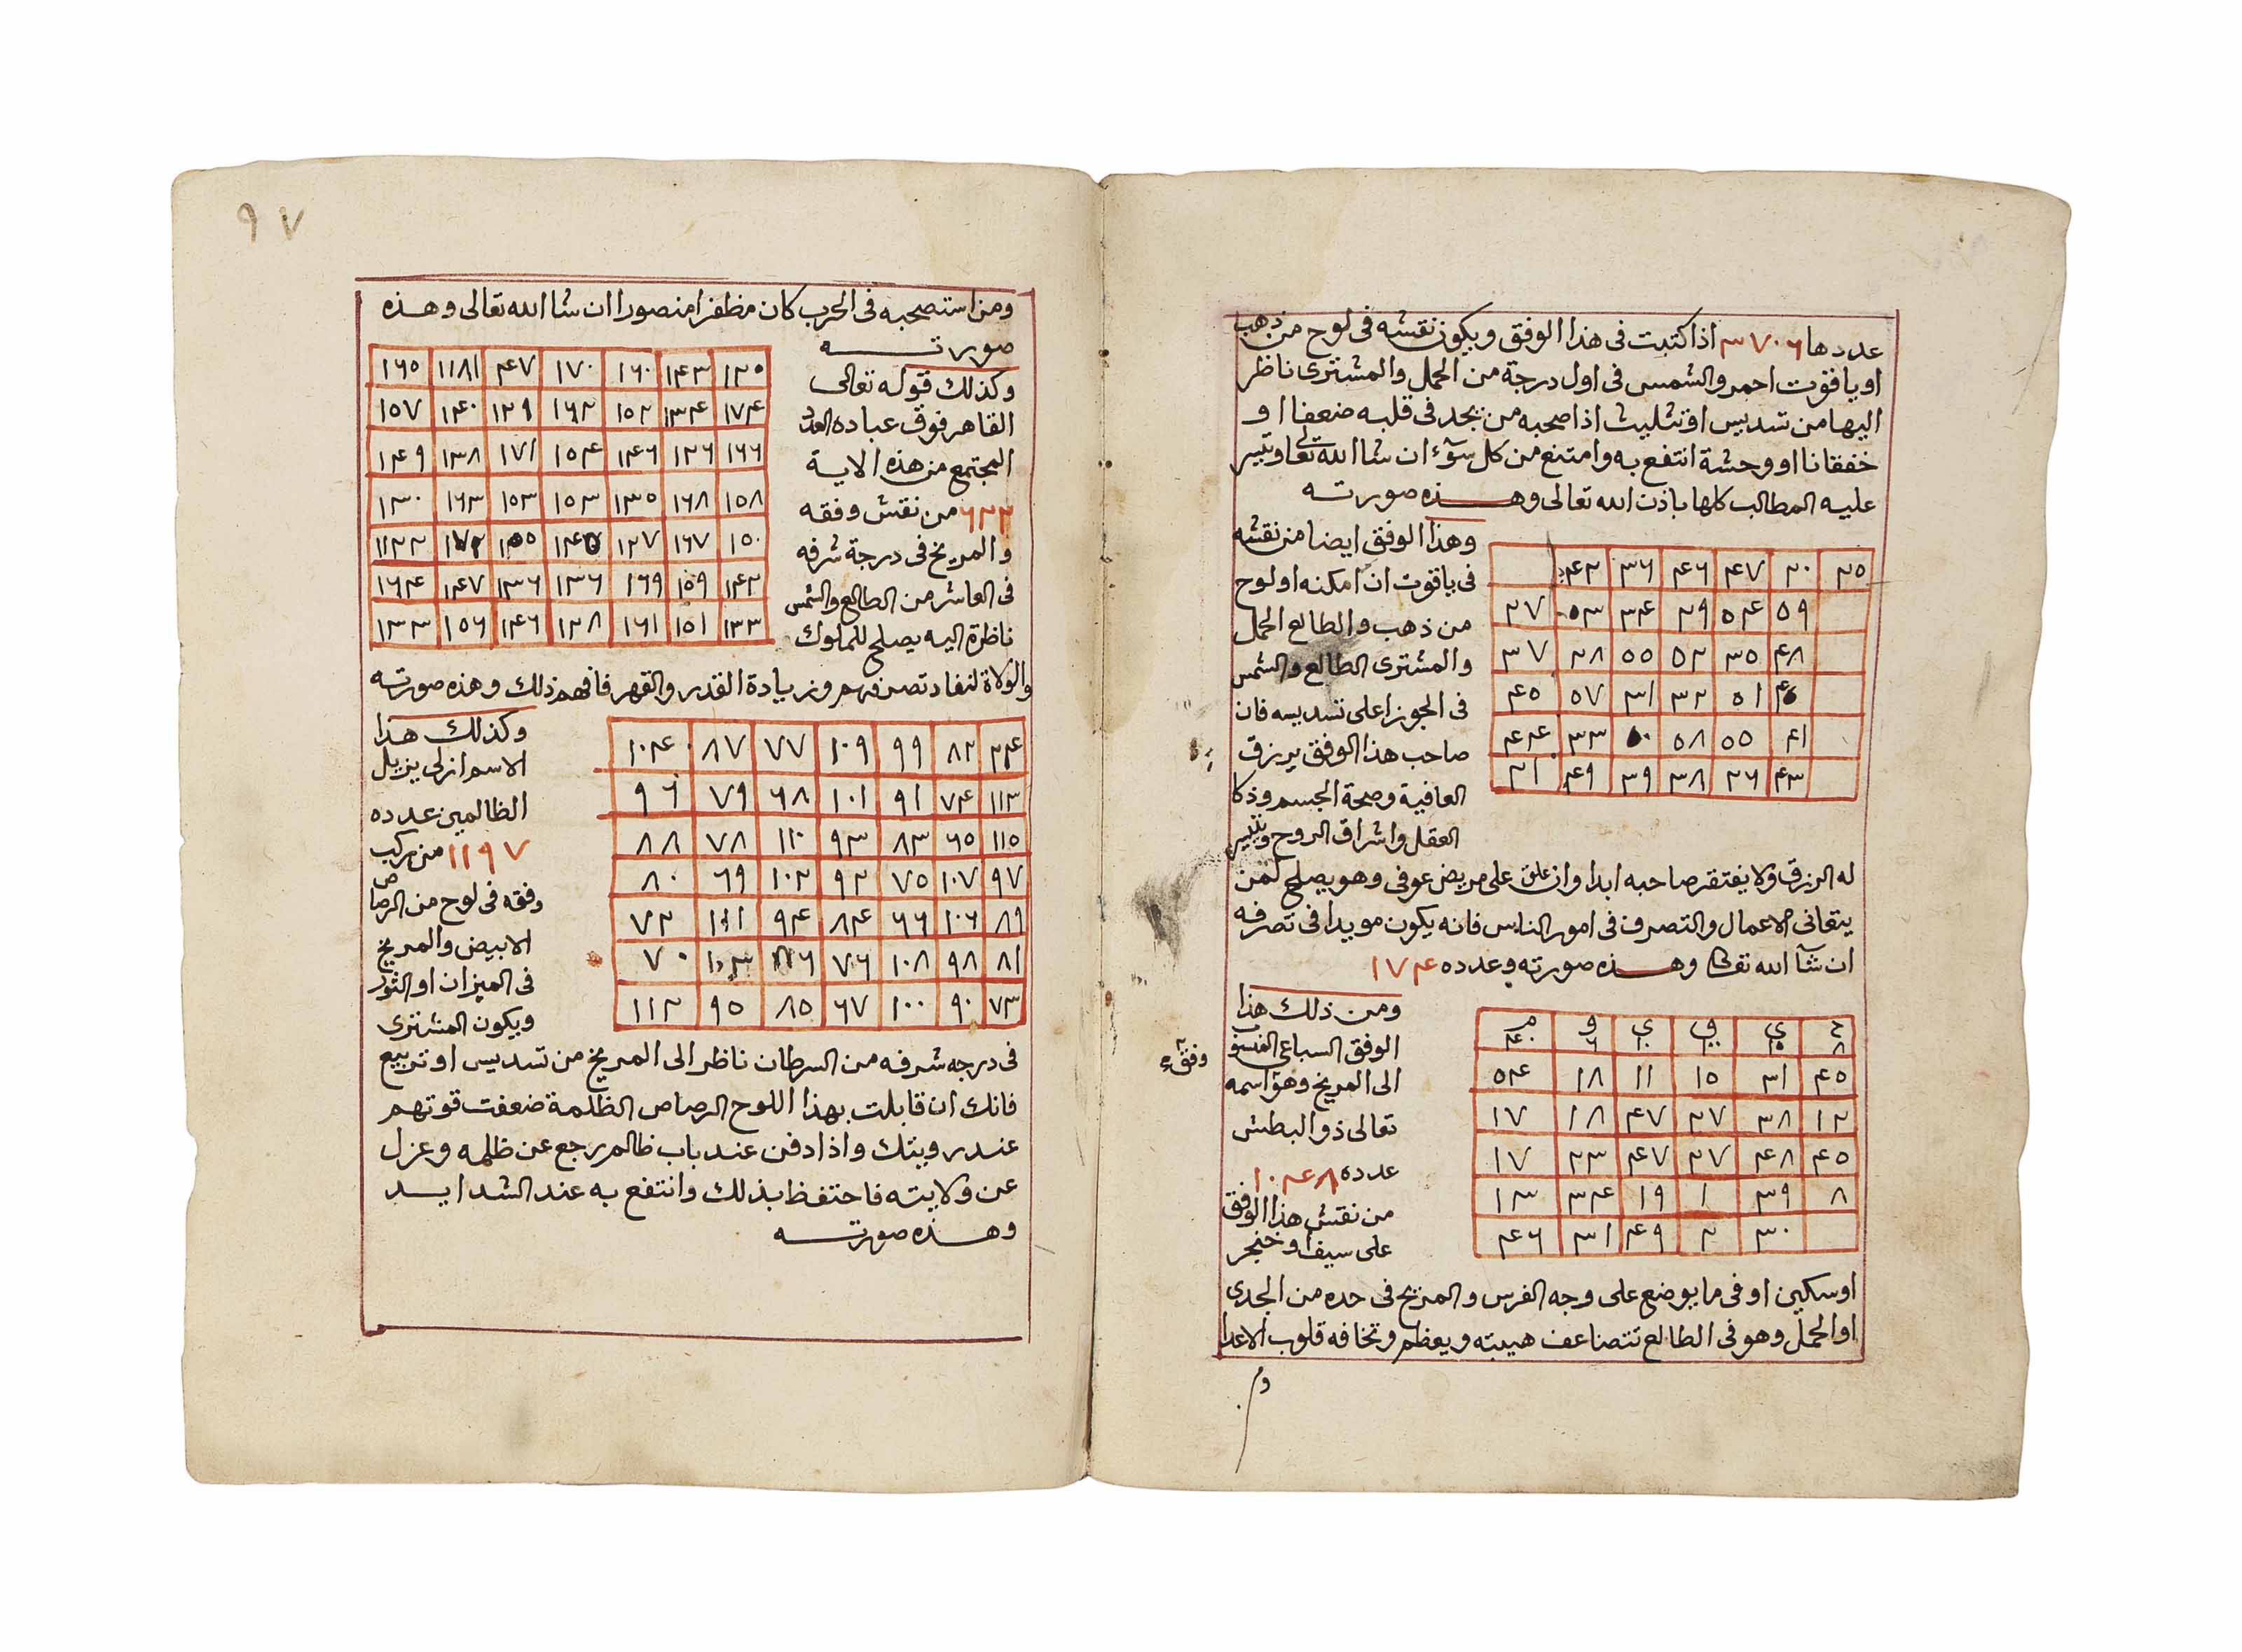 عددها ٣٧٠٦ اذا كتبت فى هذا الوفق ويكون نقشه فى لوح من ذهب
او ياقوت احمر والشمس فى اول درجة من الحمل والمشترى ناظر
اليها من تسديس او تثليث اذا صحبه من يجد فى قلبه ضعفا او
خفقانا او وحشة انتفع به وامتنع من كل سوٓء ان شا الله تعالى وتيسر
عليه المطالب كلها باذن الله تعالى وهذه صورته
وهذا الوفق ايضا من نقشه
فى ياقوت ان امكنه او لوح
من ذهب والطالع الحمل
والمشترى الطالع والشمس
فى الجوزا على تسديسه فان
صاحب هذا الوفق يرزق
العافية وصحة الجسم وذكا
العقل واشراق الروح وتيسير
٢٥ ٢٠ ٤٧ ٤٦ ٣٦ ٤٢
٥٩ ٥٤ ٢٩ ٣٤ ٥٣ ٢٧
٤٨ ٣٥ ٥٢ ٥٥ ٢٨ ٣٧
٥١ ٣٢ ٣١ ٥٧ ٤٥
٤١ ٥٥ ٥٨ ٥٠ ٣٣ ٤٤
٤٣ ٢٦ ٣٨ ٣٩ ٤٩ ٢١
له الرزق ولا يفتقر صاحبه ابدا وان علق على مريض عوفى وهو يصلح لمن
يتعانى الاعمال والتصرف فى امور الناس فانه يكون مويدا فى تصرفه
ان شآ الله تعالى وهذه صورته وعدده ١٧٤
ومن ذلك هذا
الوفق السباعى
الى المريخ وهو اسمه
تعالى ذو البطش
عدده ١٠٤٨
من نقش هذا الوفق
على سيف او خنجر
وفق
ح ى ق ى و م
٨ ١٠ ١٠٠ ١٠ ٦ ٤٠
٤٥ ٣١ ١٥ ١١ ١٨ ٥٤
١٢ ٣٨ ٢٧ ٤٧ ١٨ ١٧
٤٥ ٤٨ ٢٧ ٤٧ ٢٣ ١٧
٨ ٣٩ ١ ١٩ ٣٤ ١٣
٣٠ ٢ ٤٩ ٣١ ٤٦
او سكين او فى ما يوضع على وجه الفرس والمريخ فى حده من الجدى
او الحمل وهو فى الطالع تتضاعف هيبته ويعظم وتخافه قلوب الاعدا
وم
٩٧
ومن استصحبه فى الحرب كان مظفرا منصورا ان شا الله تعالى وهذه
صورته
وكذلك قوله تعالى
القاهر فوق عباده العدد
المجتمع من هذه الاية
٦٢٢ من نقش وفقه
والمريخ فى درجة شرفه
فى العاشر من الطالع والشمس
ناظرة اليه يصلح للملوك
١٢٥ ١٤٣ ١٦٠ ١٧٠ ٤٧ ١١٨١ ١٦٥
١٧٤ ١٣٤ ١٥٢ ١٦٢ ١٢٩ ١٤٠ ١٥٧
١٦٦ ١٢٦ ١٤٦ ١٥٤ ١٧١ ١٣٨ ١٤٩
١٥٨ ١٦٨ ١٣٥ ١٥٣ ١٥٣ ١٦٣ ١٣٠
١٥٠ ١٦٧ ١٢٧ ١١٢٢
١٤٢ ١٥٩ ١٦٩ ١٣٦ ١٣٦ ١٤٧ ١٦٤
١٣٣ ١٥١ ١٦١ ١٢٨ ١٤٦ ١٥٦ ١٣٣
والولاة لنفاد تصرفهم وزيادة القدر والقهر فافهم ذلك وهذه صورته
٢٤ ٨٢ ٩٩ ١٠٩ ٧٧ ٨٧ ١٠٤
١١٣ ٧٤ ٩١ ١٠١ ٦٨ ٧٩ ٩٦
١١٥ ٦٥ ٨٣ ٩٣ ١١٠ ٧٨ ٨٨
٩٧ ١٠٧ ٧٥ ٩٢ ١٠٢ ٦٩ ٨٠
٨٩ ١٠٦ ٦٦ ٨٤ ٩٤ ١١١ ٧٢
٨١ ٩٨ ١٠٨ ٧٦ ٨٦ ١٠٣ ٧٠
٧٣ ٩٠ ١٠٠ ٦٧ ٨٥ ٩٥ ١١٢
وكذلك هذا
الاسم ازلى يزيل
الظالمين عدده
١١٩٧ من ركب
وفقه فى لوح من الرصاص
الابيض والمريخ
فى الميزان او الثور
ويكون المشترى
فى درجه شرفه من السرطان ناظر الى المريخ من تسديس او تربيع
فانك ان قابلت بهذا اللوح الرصاص الظلمة ضعفت قوتهم
عند رويتك واذا دفن عند باب ظالم رجع عن ظلمه وعزل
عن ولايته فاحتفظ بذلك وانتفع به عند الشدايد
وهذه صورته